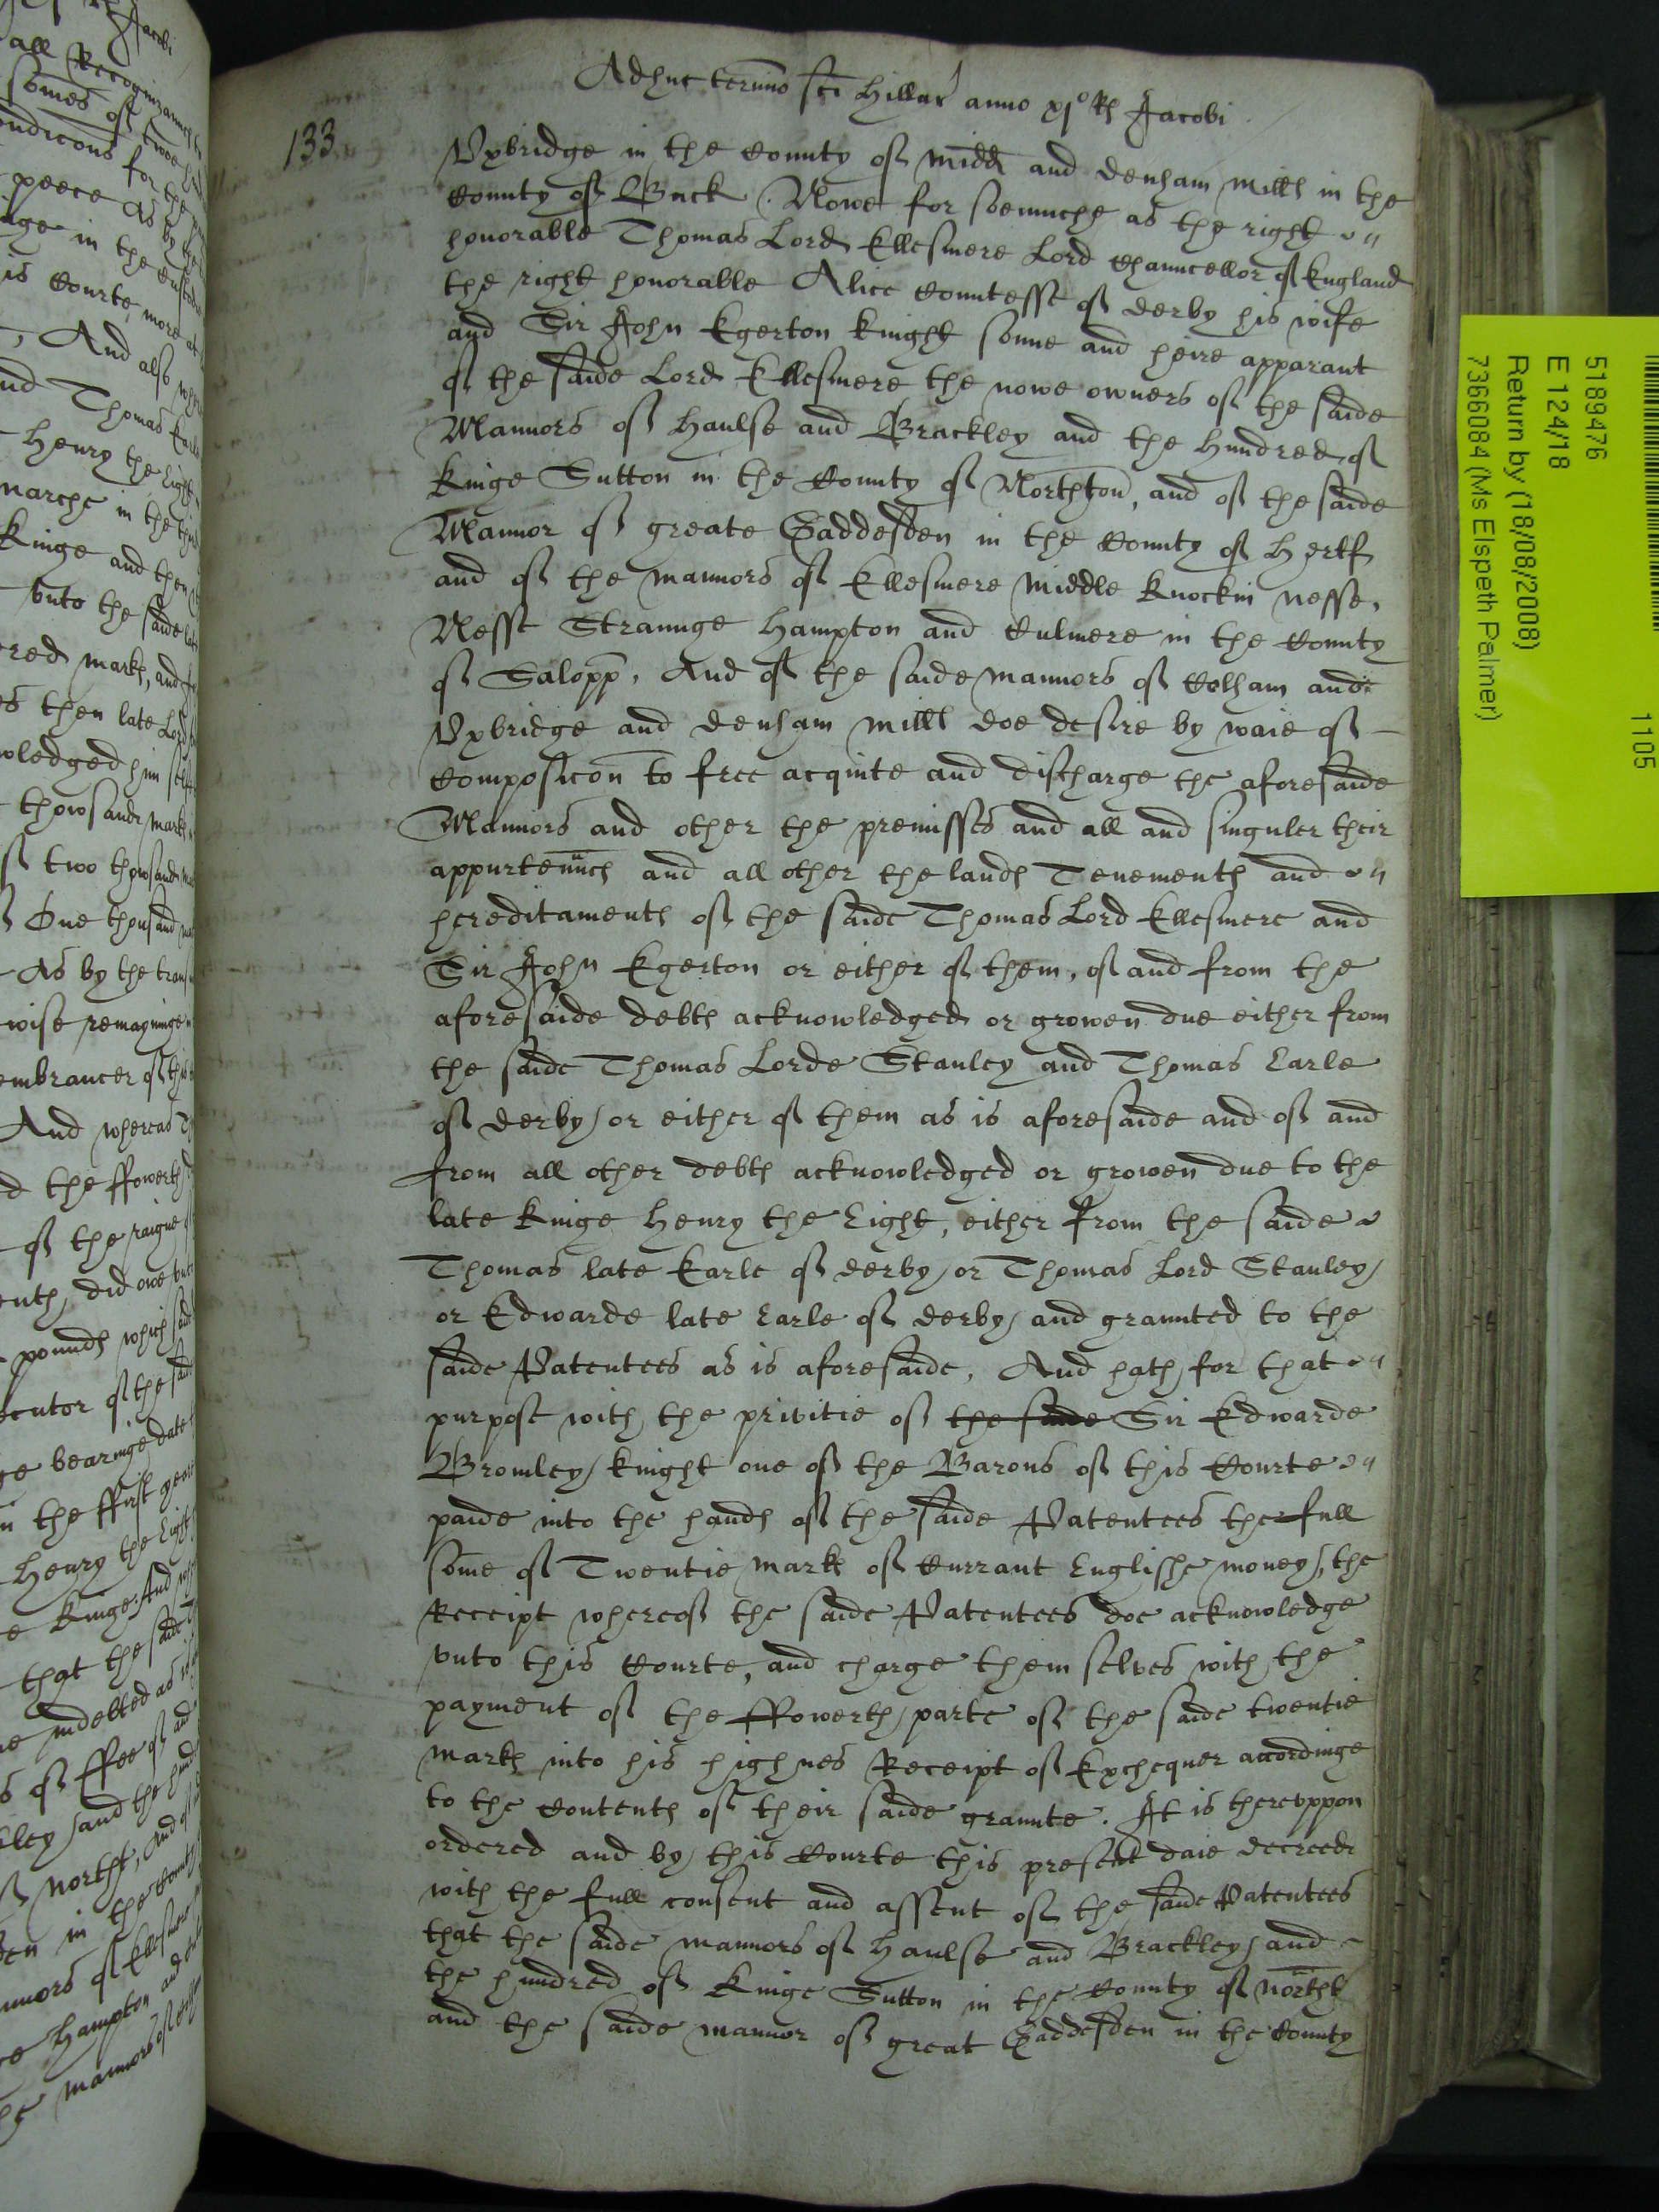 Adhuc termino sci Hillar anno xjo Rs Jacobi
133
Vxbridge in the County of Midd and denham mills in the
County of Buck. Nowe for soemuche as the right
honorable Thomas Lord Ellesmere Lord Chauncellor of England
the right honorable Alice Countesse of derby his wife
and Sir John Egerton knight sonne and heire apparant
of the saide Lord Ellesmere the nowe owners of the saide
Mannors of Haulse and Brackley and the Hundred of
Kinge Sutton in the County of Northton, and of the saide
Mannor of greate Gaddesden in the County of Hertf
and of the mannors of Ellesmere Middle Knockin nesse,
Nesse Straunge Hampton and Culmere in the County
of Salopp, And of the saide mannors of Colham and
Vxbridge and denham mills doe desire by waie of
Composicon to free acquite and discharge the aforesaide
Mannors and other the premisses and all and singuler their
appurtenncs and all other the lands Tenements and
hereditaments of the saide Thomas Lord Ellesmere and
Sir John Egerton or either of them, of and from the
aforesaide debts acknowledged or growen due either from
the saide Thomas Lorde Stanley and Thomas Earle
of derby or either of them as is aforesaide and of and
from all other debts acknowledged or growen due to the
late kinge Henry the Eight, either from the saide
Thomas late Earle of derby or Thomas Lord Stanley
or Edwarde late Earle of derby and graunted to the
saide Patentees as is aforesaide, And hath for that
purpose with the privitie of the saide Sir Edwarde
Bromley knight one of the Barons of this Courte
paide into the hands of the saide Patentees the full
some of Twentie marks of Currant Englishe money, the
Receipt whereof the saide Patentees doe acknowledge
vnto this Courte, and charge them selves with the
payment of the ffowerth parte of the saide twentie
marks into his highnes Receipt of Exchequer accordinge
to the Contents of their saide graunte. It is therevppon
ordered and by this Courte this present daie decreed
with the full consent and assent of the saide Patentees
that the saide mannors of Haulse and Brackley and
the hundred of Kinge Sutton in the County of Northt
and the saide mannor of great Gaddesden in the County
5189476
E 124/18
Return by (18/08/2008)
7366084 (Ms Elspeth Palmer)
1105